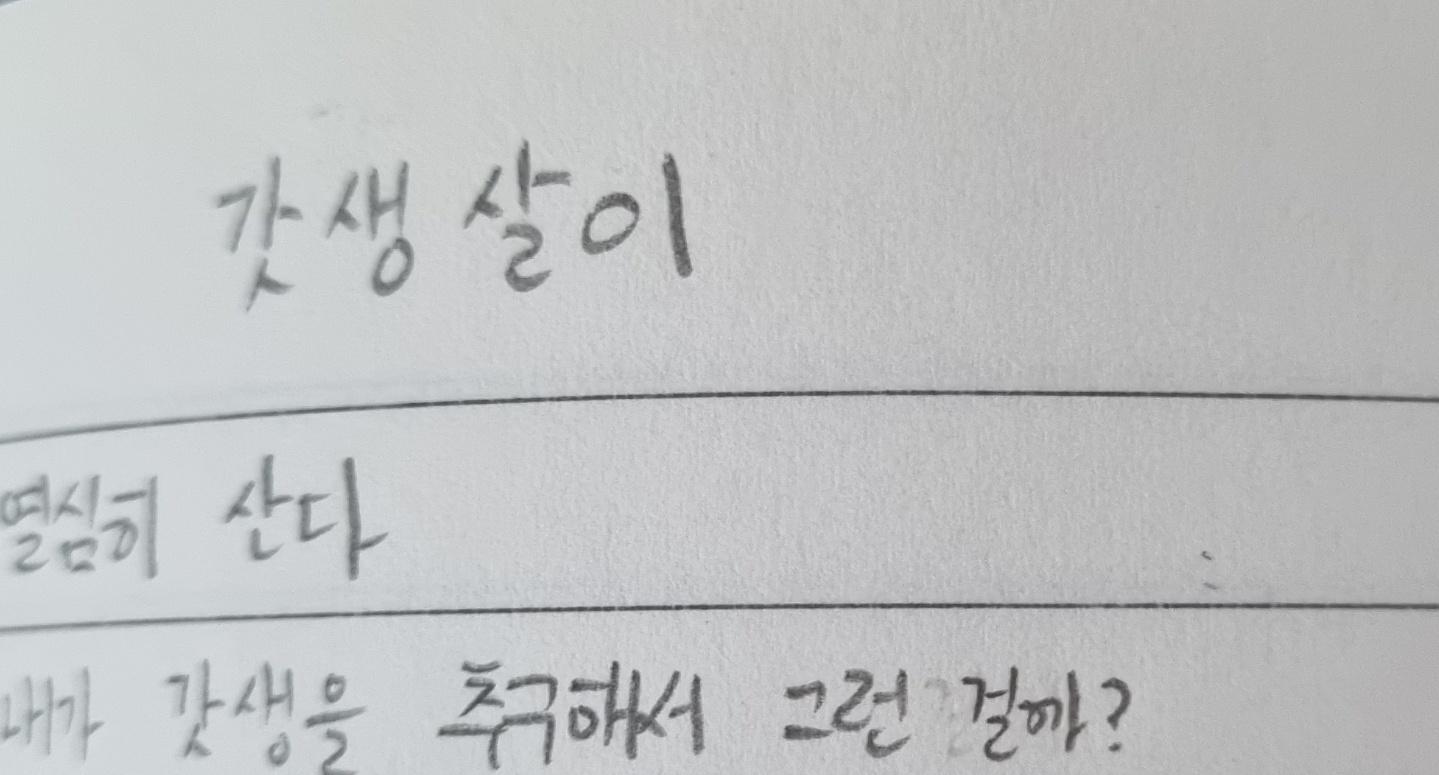 갓생살이
열심히 산다
내가 갓생을 추구해서 그런 걸까?